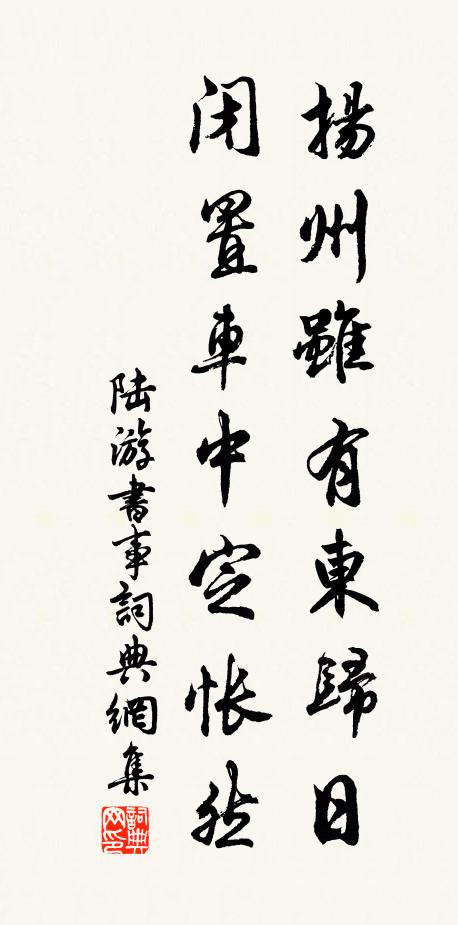 揚州雖有東歸日
闭置車中定悵然
陆游書事詞典網集
詞典网印